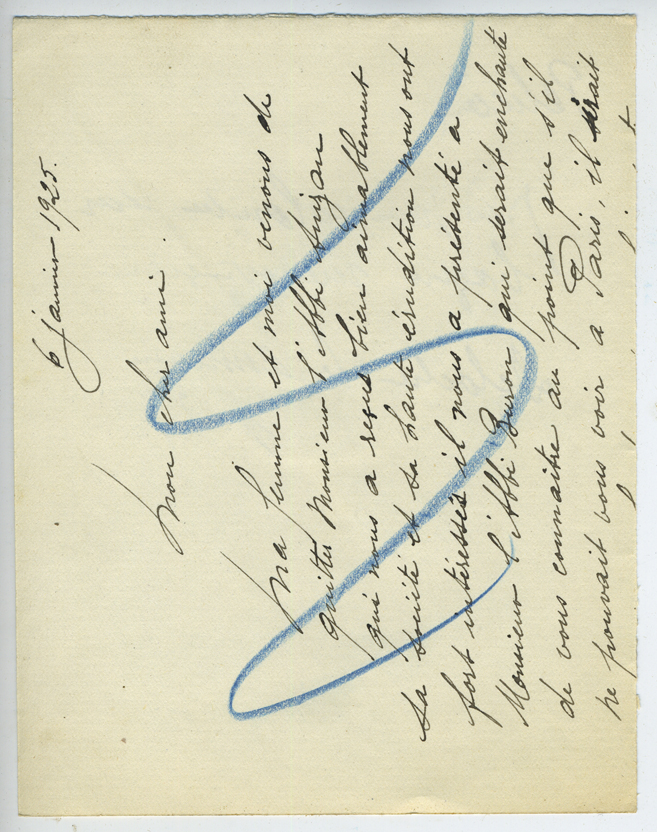 6 janvier 1925.
Mon cher ami.
Ma femme et moi venons de
quitter Monsieur l'Abbé
qui nous a reçus bien aimablement
sa bonté et sa haute érudition nous ont
fort intéressés il nous a présenté a
Monsieur l'Abbé Buron qui serait enchanté
de vous connaitre au point que s'il
ne pouvait vous voir a Paris, il serait